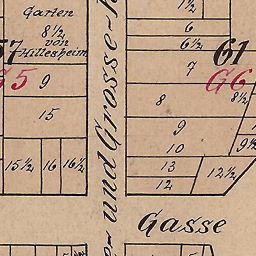 Garten
8½
von
Hillesheim
57
65
9
15
15½ 16 16½
und Grosse-
1½
6
6½
61
7
66
8
8½
9
10
9½
13
12
12½
Gasse
5